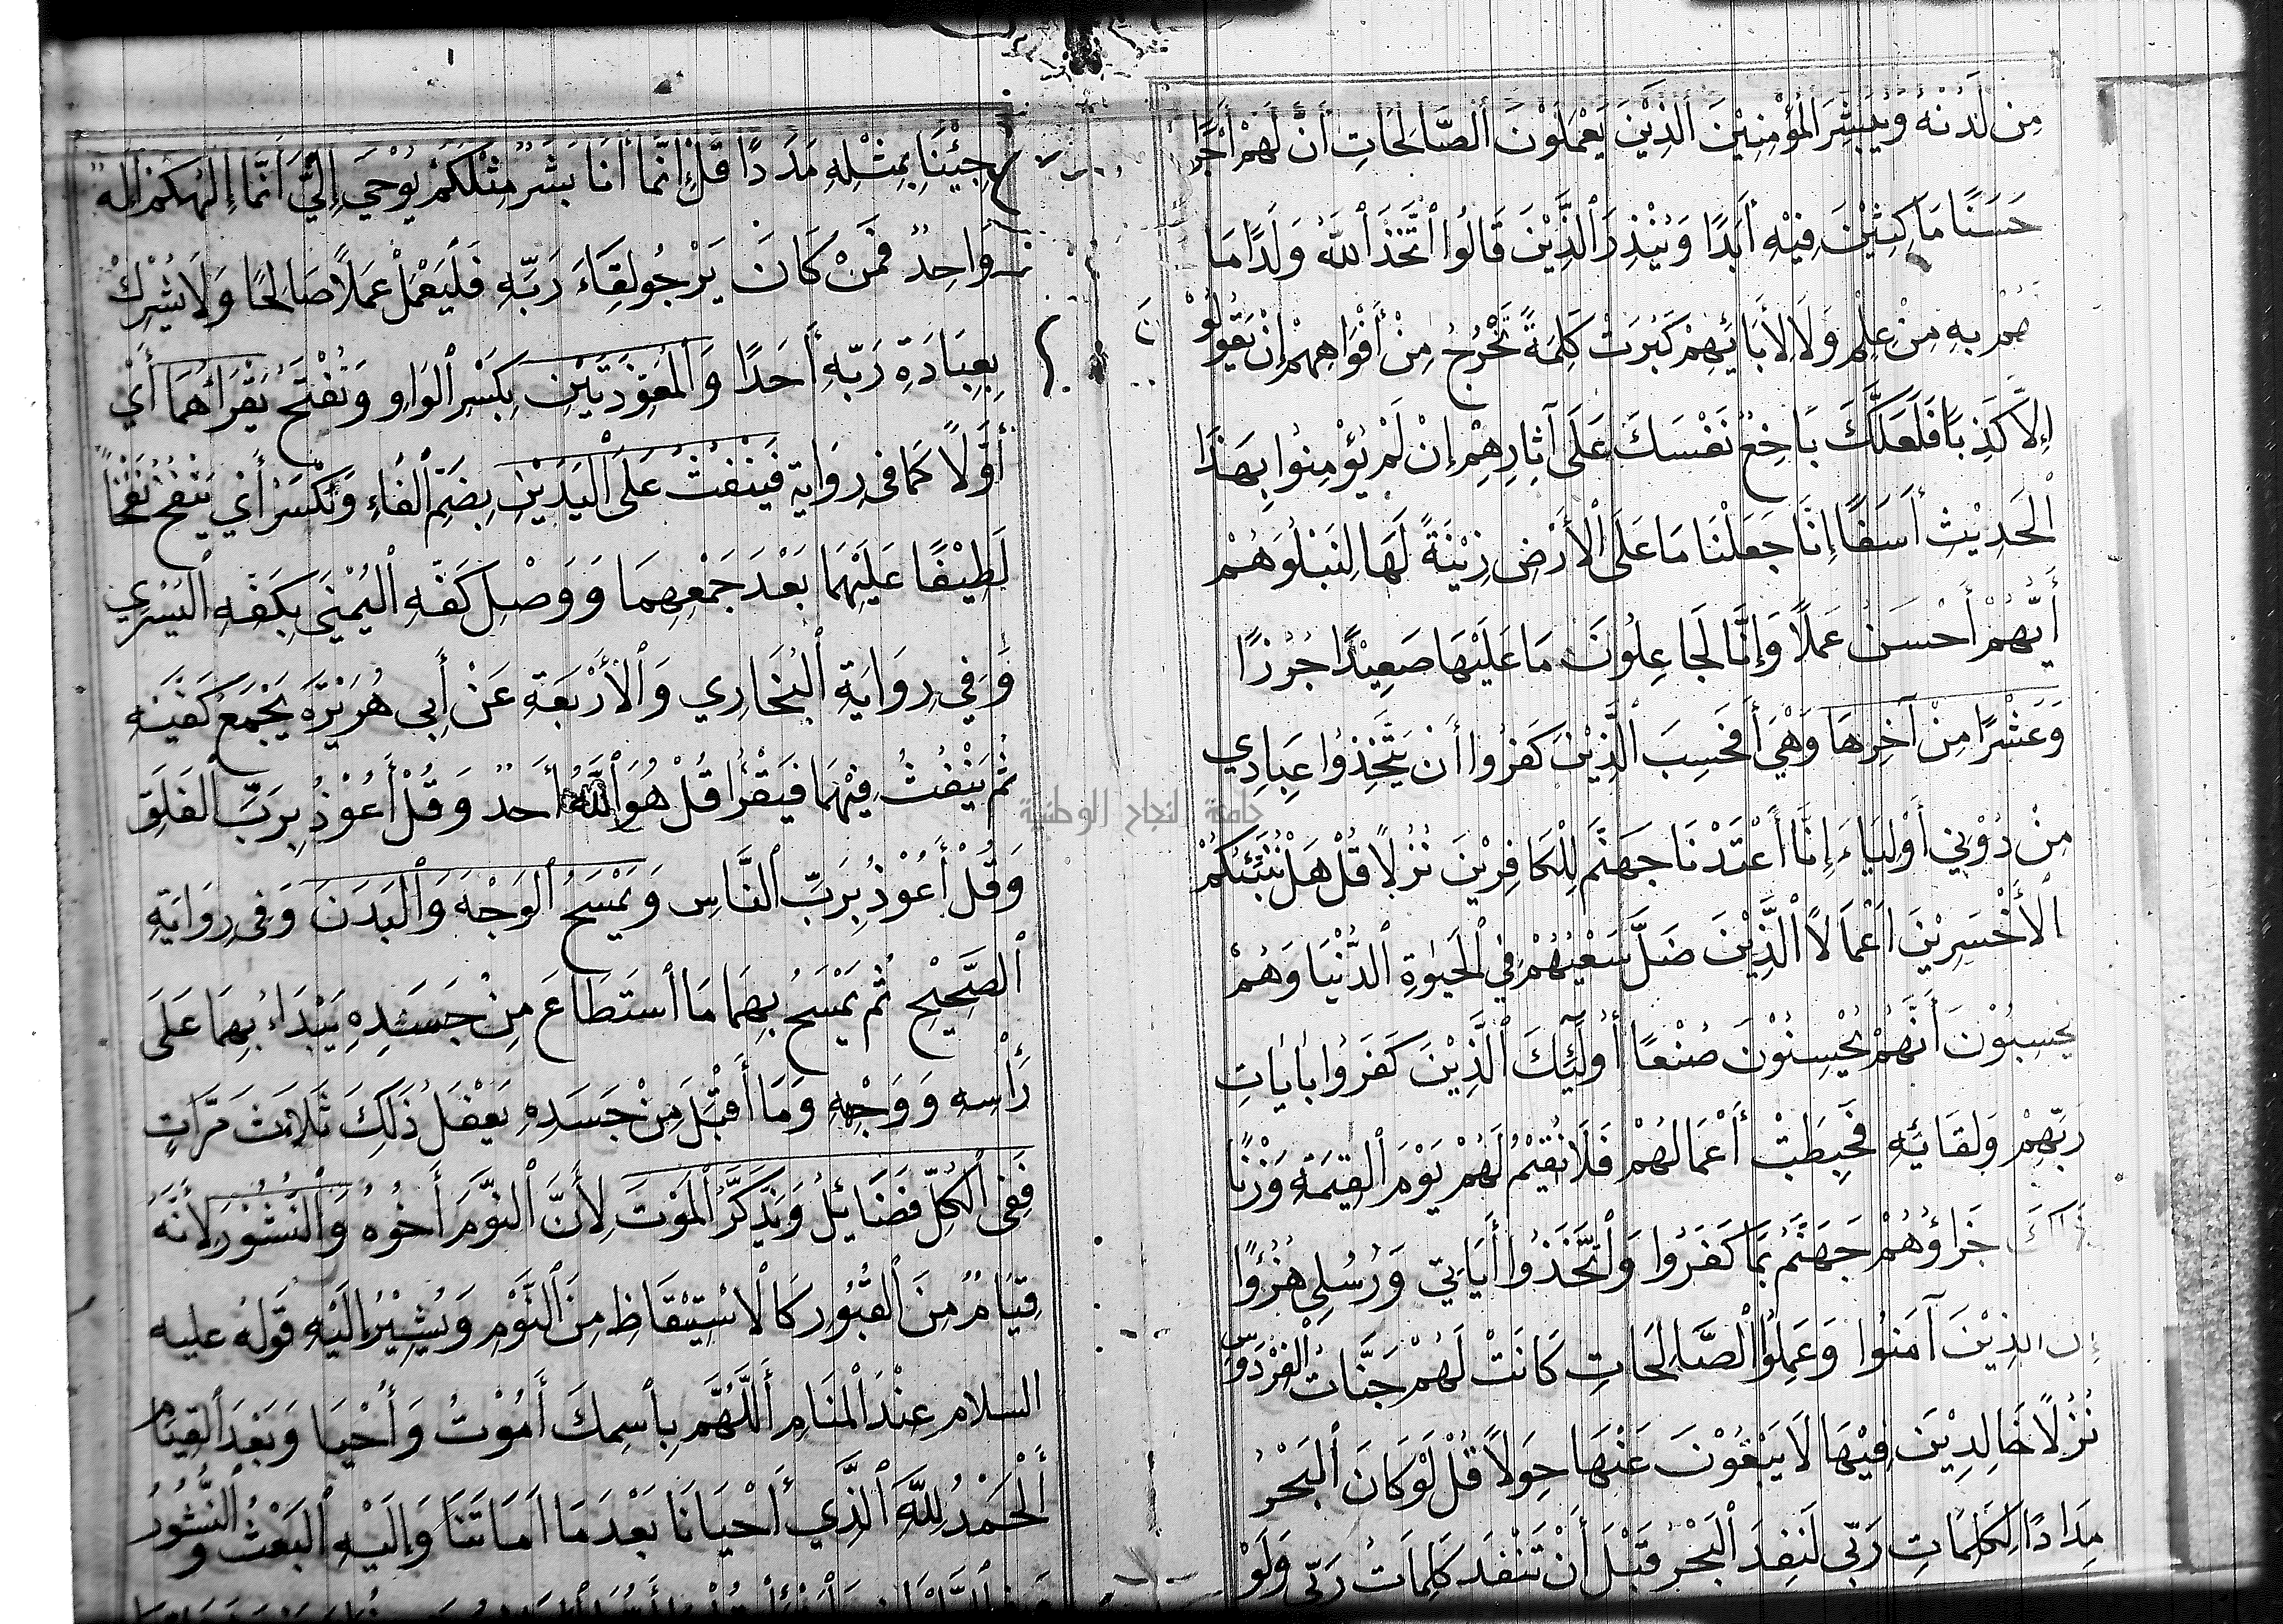 مِن لَدُنْهُ وَيُبَشِّرَ الْمُؤْمِنِيْنَ الَّذِيْنَ يَعْمَلُوْنَ الصَّالِحَاتِ أَنَّ لَهُمْ أَجْرًا
حَسَنًا مَاكِثِيْنَ فِيْهِ أَبَدًا وَيُنْذِرَ الَّذِيْنَ قَالُوا اتَّخَذَ اللهُ وَلَدًا مَا
لَهُمْ بِهِ مِنْ عِلْمٍ وَلَا لِأَبَائِهِمْ كَبُرَتْ كَلِمَةً تَخْرُجُ مِنْ أَفْوَاهِهِمْ إِنْ يَقُولُوْنَ
إِلَّا كَذِبًا فَلَعَلَّكَ بَاخِعٌ نَفْسَكَ عَلَى آثَارِهِمْ إِنْ لَمْ يُؤْمِنُوا بِهَذَا
الْحَدِيْثِ أَسَفًا إِنَّا جَعَلْنَا مَا عَلَى الْأَرْضِ زِيْنَةً لَهَا لِنَبْلُوَهُمْ
أَيُّهُمْ أَحْسَنُ عَمَلًا وَإِنَّا لَجَاعِلُونَ مَا عَلَيْهَا صَعِيْدًا جُرُزًا
وَعَشْرًا مِنْ آخِرِهَا وَهْيَ أَفَحَسِبَ الَّذِيْنَ كَفَرُوا أَنْ يَتَّخِذُوا عِبَادِي
مِنْ دُوْنِي أَوْلِيَاءَ إِنَّا أَعْتَدْنَا جَهَنَّمَ لِلْكَافِرِيْنَ نُزُلًا قُلْ هَلْ نُنَبِّئُكُمْ
الْأَخْسَرِيْنَ أَعْمَالًا الَّذِيْنَ ضَلَّ سَعْيُهُمْ فِي الْحَيٰوةِ الدُّنْيَا وَهُمْ
يحسبُوْنَ أَنَّهُمْ يُحْسِنُوْنَ صُنْعًا أُولٰئِكَ الَّذِيْنَ كَفَرُوا بِأٰيَاتِ
رَبِّهِمْ وَلِقَائِهِ فَحَبِطَتْ أَعْمَالُهُمْ فَلَا نُقِيْمُ لَهُمْ يَوْمَ الْقِيٰمَةِ وَزْنًا
جَزَاؤُهُمْ جَهَنَّمُ بِمَا كَفَرُوا وَاتَّخَذُوا أٰيَاتِي وَرُسُلِي هُزُوًا
إن الذِيْنَ آمَنُوا وَعَمِلُوا الصَّالِحَاتِ كَانَتْ لَهُمْ جَنَّاتُ الْفِرْدَوْسِ
نُزُلًا خَالِدِيْنَ فِيْهَا لَا يَبْغُوْنَ عَنْهَا حِوَلًا قُلْ لَوْ كَانَ الْبَحْرُ
مِدَادًا لِكَلِمَاتِ رَبِّي لَنَفِدَ الْبَحْرُ قَبْلَ أَنْ تَنْفَدَ كَلِمَاتُ رَبِّي وَلَوْ
جِئْنَا بِمِثْلِهِ مَدَدًا قُلْ إِنَّمَا أَنَا بَشَرٌ مِثْلُكُمْ يُوْحَى إِلَيَّ أَنَّمَا إِلٰهُكُمْ إِلٰهٌ
وَاحِدٌ فَمَنْ كَانَ يَرْجُو لِقَاءَ رَبِّهِ فَلْيَعْمَلْ عَمَلًا صَالِحًا وَلَا يُشْرِكْ
بِعِبَادَةِ رَبِّهِ أَحَدًا وَالْمُعَوِّذَتَيْنِ بِكَسْرِ الْوَاوِ وَتُفْتَحُ يَقْرَأُهُمَا أَيْ
أَوَّلًا كَمَا فِي رِوَايَةٍ فَيَنْفُثُ عَلَى الْيَدَيْنِ بِضَمِّ الْفَاءِ وَتُكْسَرُ أَيْ يَنْفُخُ نَفْخًا
لَطِيْفًا عَلَيْهِمَا بَعْدَ جَمْعِهِمَا وَوَصْلِ كَفِّهِ الْيُمْنَى بِكَفِّهِ الْيُسْرَى
وَفِي رِوَايَةِ الْبُخَارِي وَالْأَرْبَعَةِ عَنْ أَبِي هُرَيْرَةَ يَجْمَعُ كَفَّيْهِ
ثُمَّ يَنْفُثُ فِيْهِمَا فَيَقْرَأُ قُلْ هُوَ اللَّهُ أَحَدٌ وَقُلْ أَعُوْذُ بِرَبِّ الْفَلَقِ
وَقُلْ أَعُوْذُ بِرَبِّ النَّاسِ وَيَمْسَحُ الْوَجْهَ وَالْبَدَنَ وَفِي رِوَايَةِ
الصَّحِيْحِ ثُمَّ يَمْسَحُ بِهِمَا مَا اسْتَطَاعَ مِنْ جَسَدِهِ يَبْدَاءُ بِهِمَا عَلَى
رَأْسِهِ وَوَجْهِهِ وَمَا أَقْبَلَ مِنْ جَسَدِهِ يَفْعَلُ ذَلِكَ ثَلَاثَ مَرَّاتٍ
فَفِي الْكُلِّ فَضَائِلُ وَتَذَكَّرُ الْمَوْتَ لِأَنَّ النَّوْمَ أَخُوْهُ وَالنُّشُوْرَ لِأَنَّهُ
قِيَامٌ مِنَ الْقُبُوْرِ كَالْاسْتِيْقَاظِ مِنَ النَّوْمِ وَيُشِيْرُ إِلَيْهِ قَوْلُهُ عليه
السلام عِنْدَ الْمَنَامِ أَللَّهُمَّ بِاسْمِكَ أَمُوْتُ وَأَحْيَا وَبَعْدَ الْقِيَامِ
أَلْحَمْدُ لِلَّهِ الَّذِي أَحْيَانَا بَعْدَمَا أَمَاتَنَا وَإِلَيْهِ الْبَعْثُ وَالنُّشُوْرُ
جامعة النجاح الوطنية